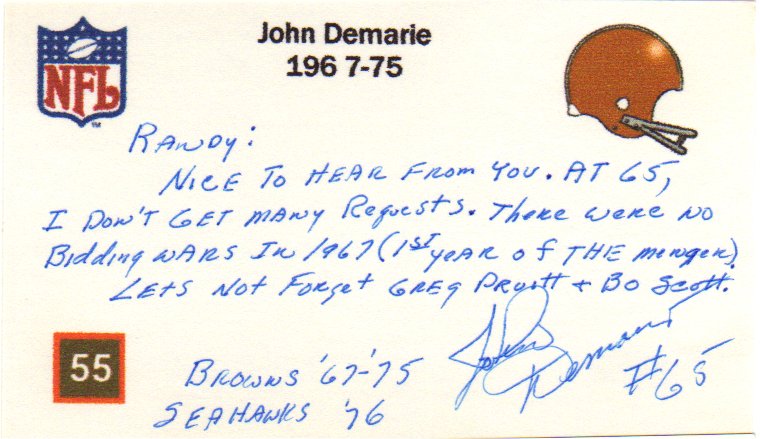 NFL
John Demarie
196 7-75
RANDY:
NICE TO HEAR FROM YOU. AT 65,
I DON'T GET MANY Requests. There were NO
Bidding WARS IN 1967 (1ST YEAR OF THE merger).
LETS NOT Forget GREG PRUITT + BO Scott.
55
BROWNS '67-'75
SEAHAWKS '76
John Demarie
#65